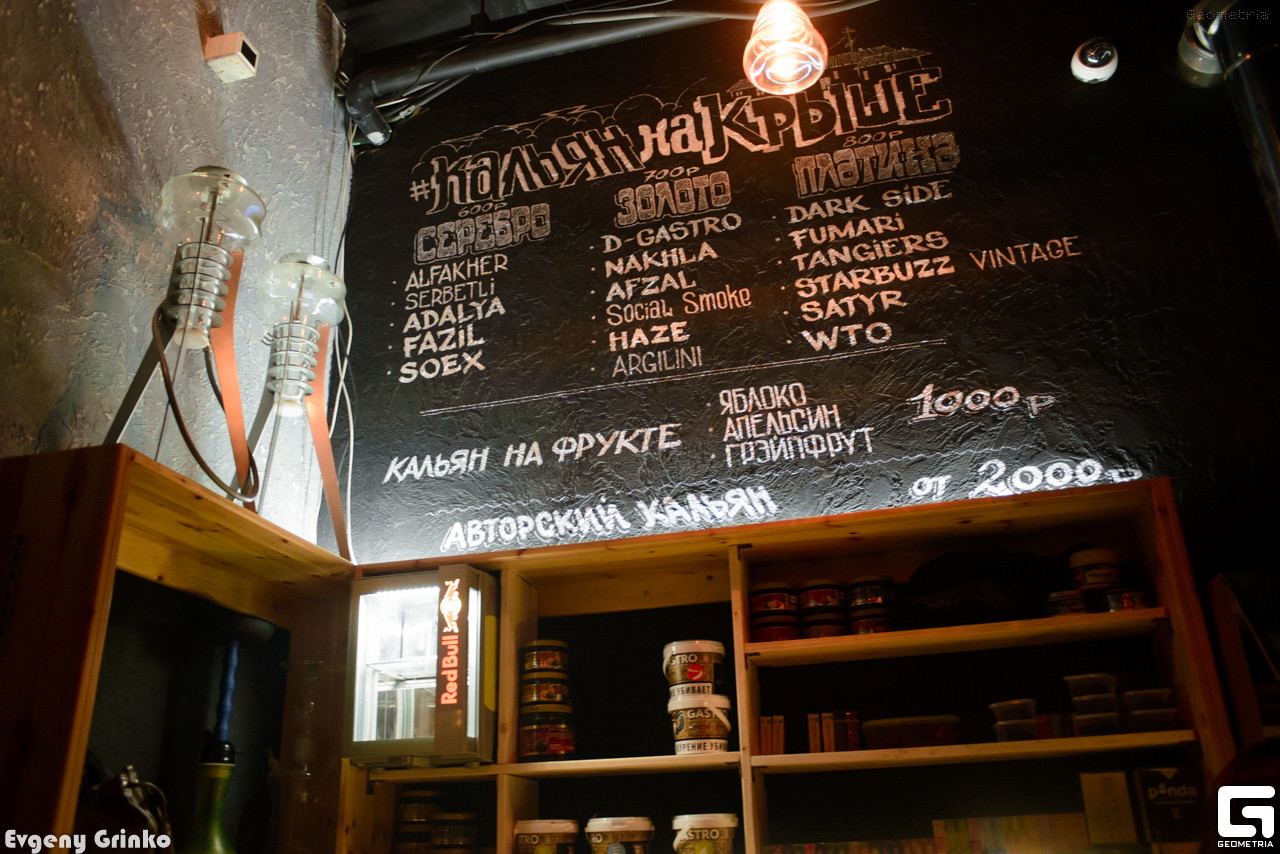 Geometria
#КальянНаКрыше
600р
СЕРЕБРО
· ALFAKHER
· SERBETLi
· ADALYA
· FAZiL
· SOEX
700р
ЗОЛОТО
· D-GASTRO
· NAKHLA
· AFZAL
· SOCiAL SMOKE
· HAZE
· ARGILINI
800р
ПЛАТИНА
· DARK SiDE
· FUMARi
· TANGiERS
· STARBUZZ VINTAGE
· SATYR
· WTO
КАЛЬЯН НА ФРУКТЕ
· ЯБЛОКО
· АПЕЛЬСИН
· ГРЭЙПФРУТ
1000р
АВТОРСКИЙ КАЛЬЯН
от 2000р
Red Bull
GASTRO
УБИВАЕТ
GASTRO
КУРЕНИЕ УБИ
GASTRO
GASTRO
panda
Evgeny Grinko
G
GEOMETRIA